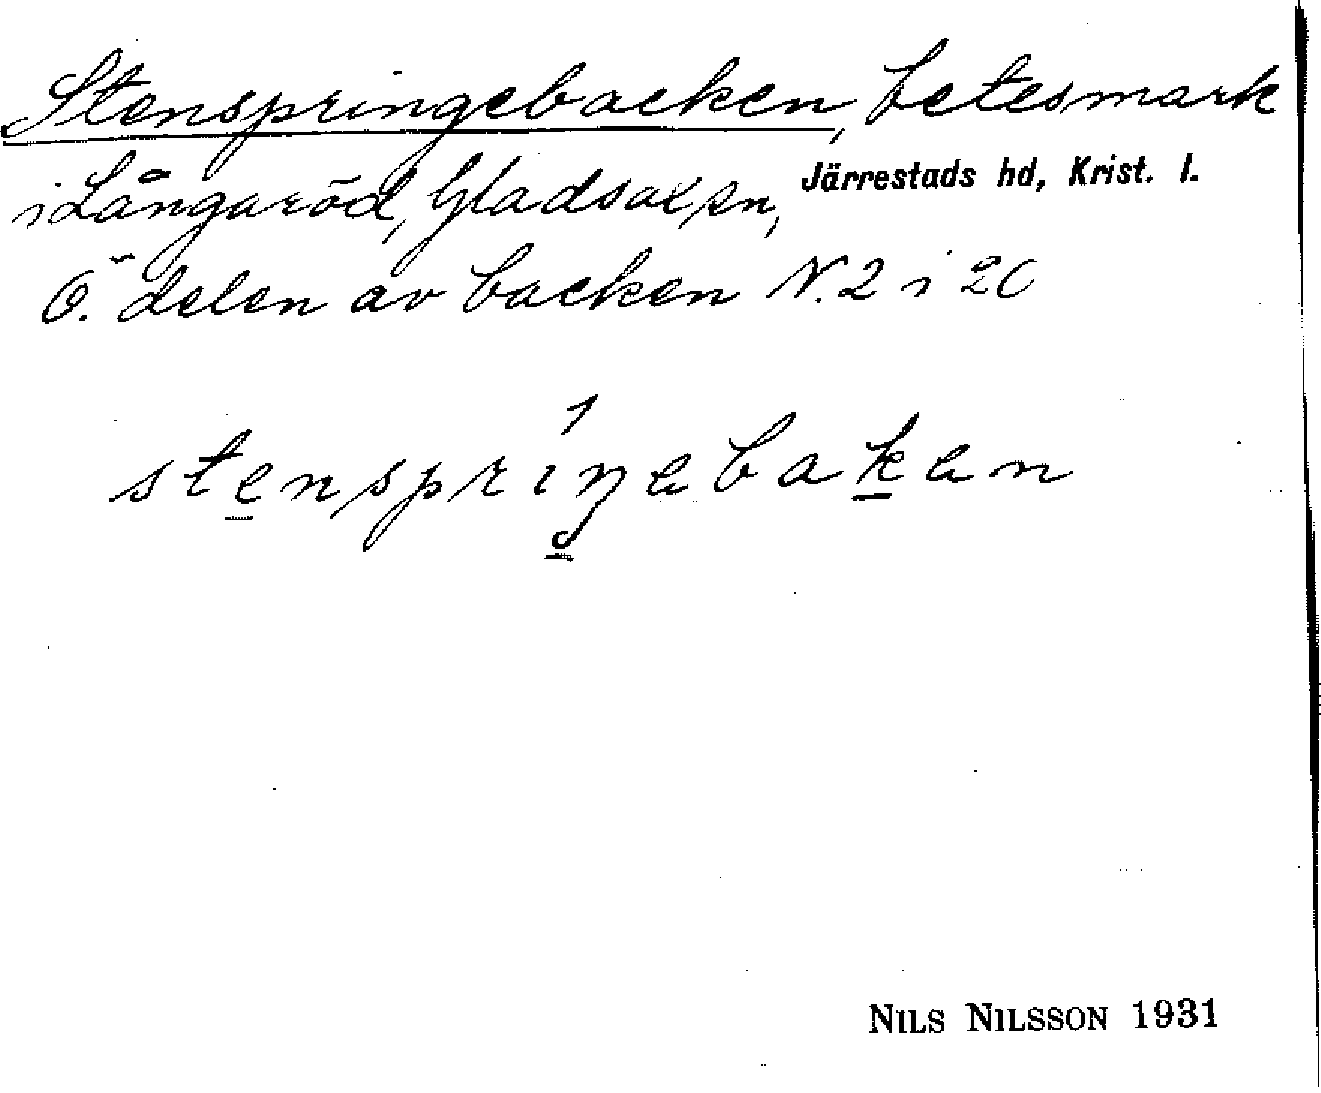 Stenspringebacken, betesmark
i Långaröd, Gladsax sn, Järrestads hd, Krist. l.
Ö. delen av backen N. 2 i 2C
stenspriŋebaken
NILS NILSSON 1931